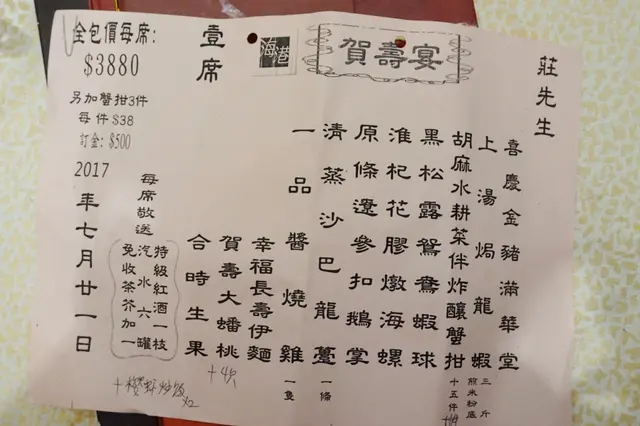 賀壽宴
海港
莊先生
喜慶金豬滿華堂
上湯焗龍蝦 三斤 煎米粉底
胡麻水耕菜伴炸釀蟹拑 十五件
黑松露鴛鴦蝦球
淮杞花膠燉海螺
原條遼參扣鵝掌
清蒸沙巴龍躉 一條
一品醬燒雞 一隻
幸福長壽伊麵
賀壽大蟠桃
+4只
合時生果
壹席
全包價每席：
$3880
另加蟹拑3件
每件 $38
訂金：$500
每席敬送
特級紅酒一枝
汽水六罐
免收茶芥加一
2017年七月廿一日
+櫻虾炒飯 x2